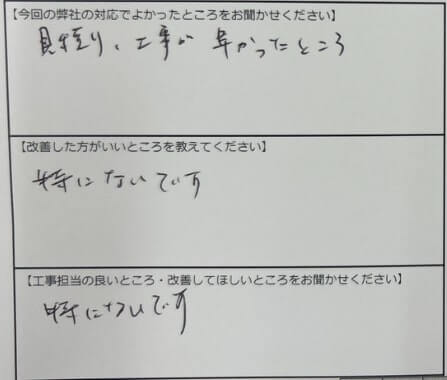 【今回の弊社の対応でよかったところをお聞かせください】
見積り、工事が 早かったところ
【改善した方がいいところを教えてください】
特にないです
【工事担当の良いところ・改善してほしいところをお聞かせください】
特にないです